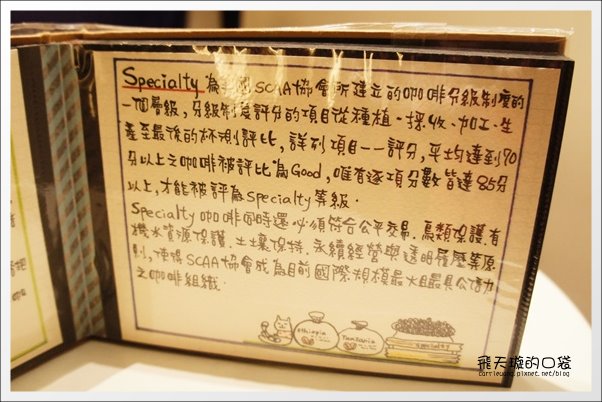 Specialty 為美國SCAA協會所建立的咖啡分級制度的
一個層級,分級制度評分的項目從種植、採收、加工、生
產至最後的杯測評比,詳列項目一一評分,平均達到70
分以上之咖啡被評比為Good,唯有逐項分數皆達85分
以上,才能被評為Specialty等級.
Specialty咖啡同時還必須符合公平交易.鳥類保護.有
機水資源保護.土壤保持.永續經營與透明履歷等原
則,使得SCAA協會成為目前國際規模最大且最具公信力
之咖啡組織.
ethiopia
Tanzania
specialty
飛天璇的口袋
carriewang.pixnet.net/blog